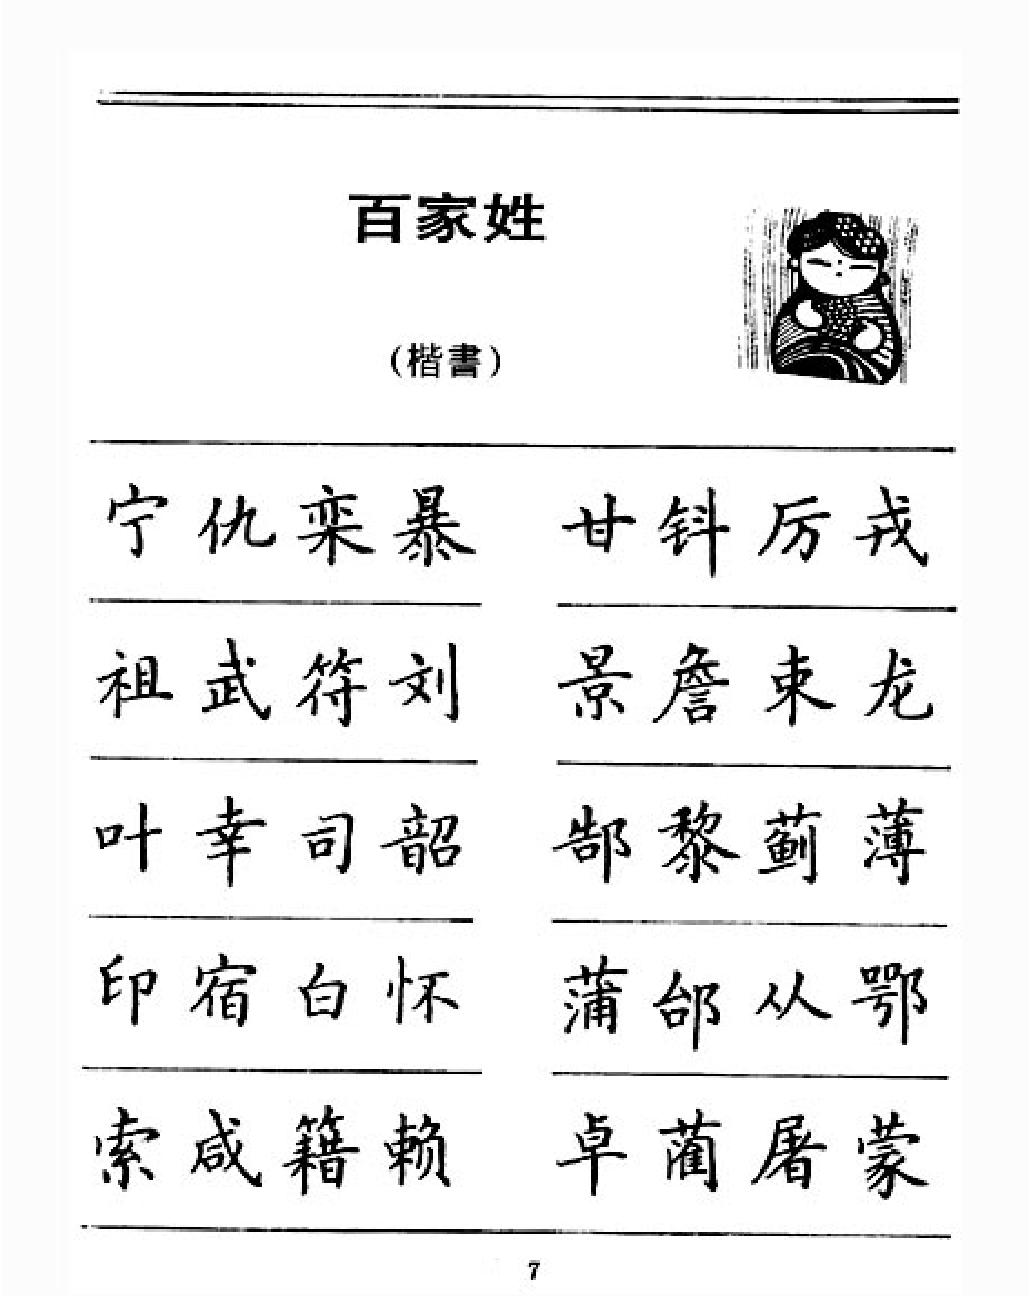 百家姓
(楷書)
宁仇栾暴 甘钭厉戎
祖武符刘 景詹束龙
叶幸司韶 郜黎蓟薄
印宿白怀 蒲邰从鄂
索咸籍赖 卓蔺屠蒙
7